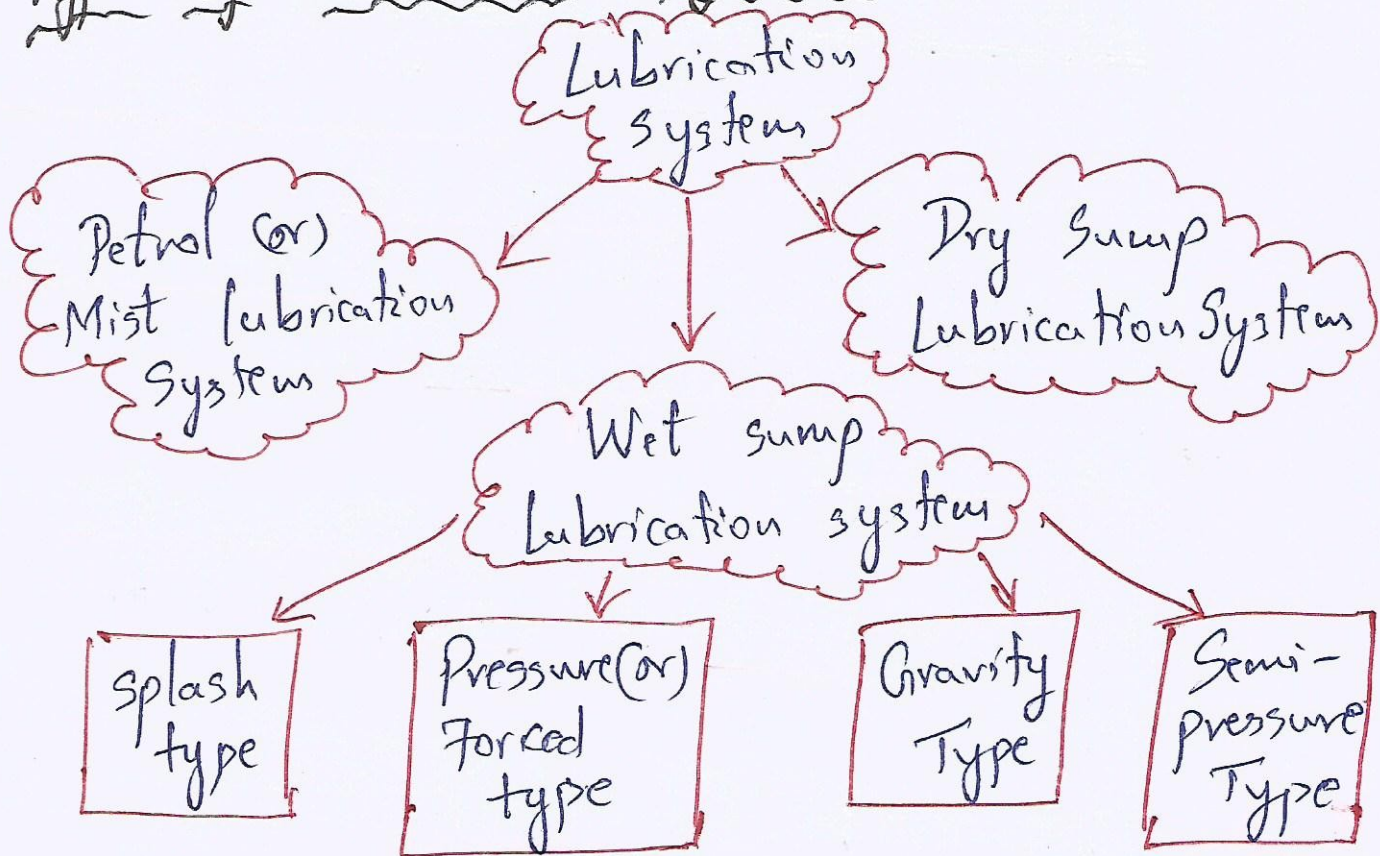 Lubrication
system
Petrol (or)
Mist lubrication
System
Dry Sump
Lubrication System
Wet sump
Lubrication system
splash
type
Pressure (or)
Forced
type
Gravity
Type
Semi-
pressure
Type